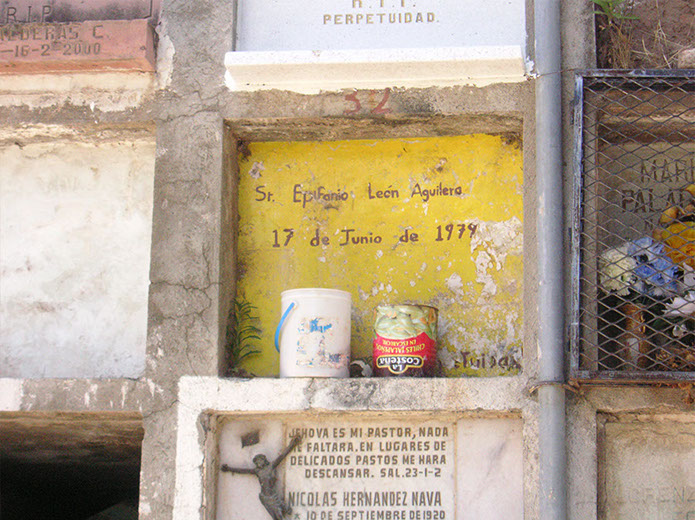 R.I.P.
DERAS C
-16-2-2000
R.I.P.
PERPETUIDAD.
32
Sr. Epifanio León Aguilera
17 de Junio de 1979
LA
Costeña
CHILES JALAPEÑOS
EN ESCABECHE
MARI
PALA
JEHOVA ES MI PASTOR, NADA
ME FALTARA. EN LUGARES DE
DELICADOS PASTOS ME HARA
DESCANSAR. SAL. 23-1-2
NICOLAS HERNANDEZ NAVA
* 10 DE SEPTIEMBRE DE 1920